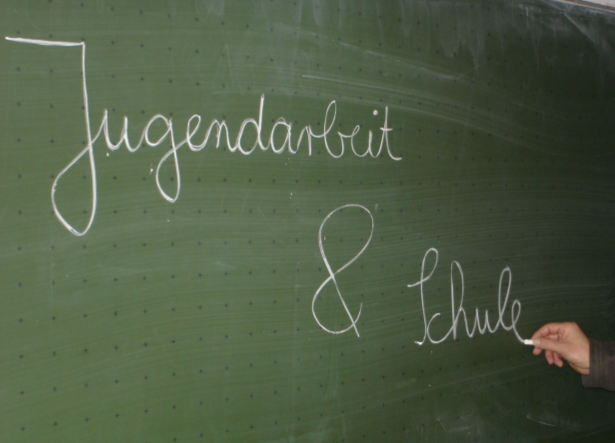 Jugendarbeit
& Schule